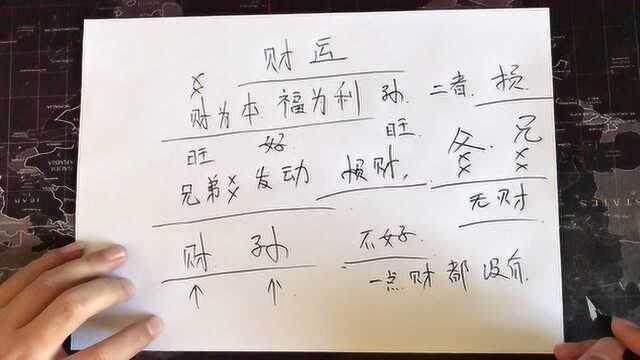 财运
财为本 福为利 孙 二者 损
旺 好 旺
兄弟 发动 损财, 父 兄
无财
财 孙 不好
一点财都没有